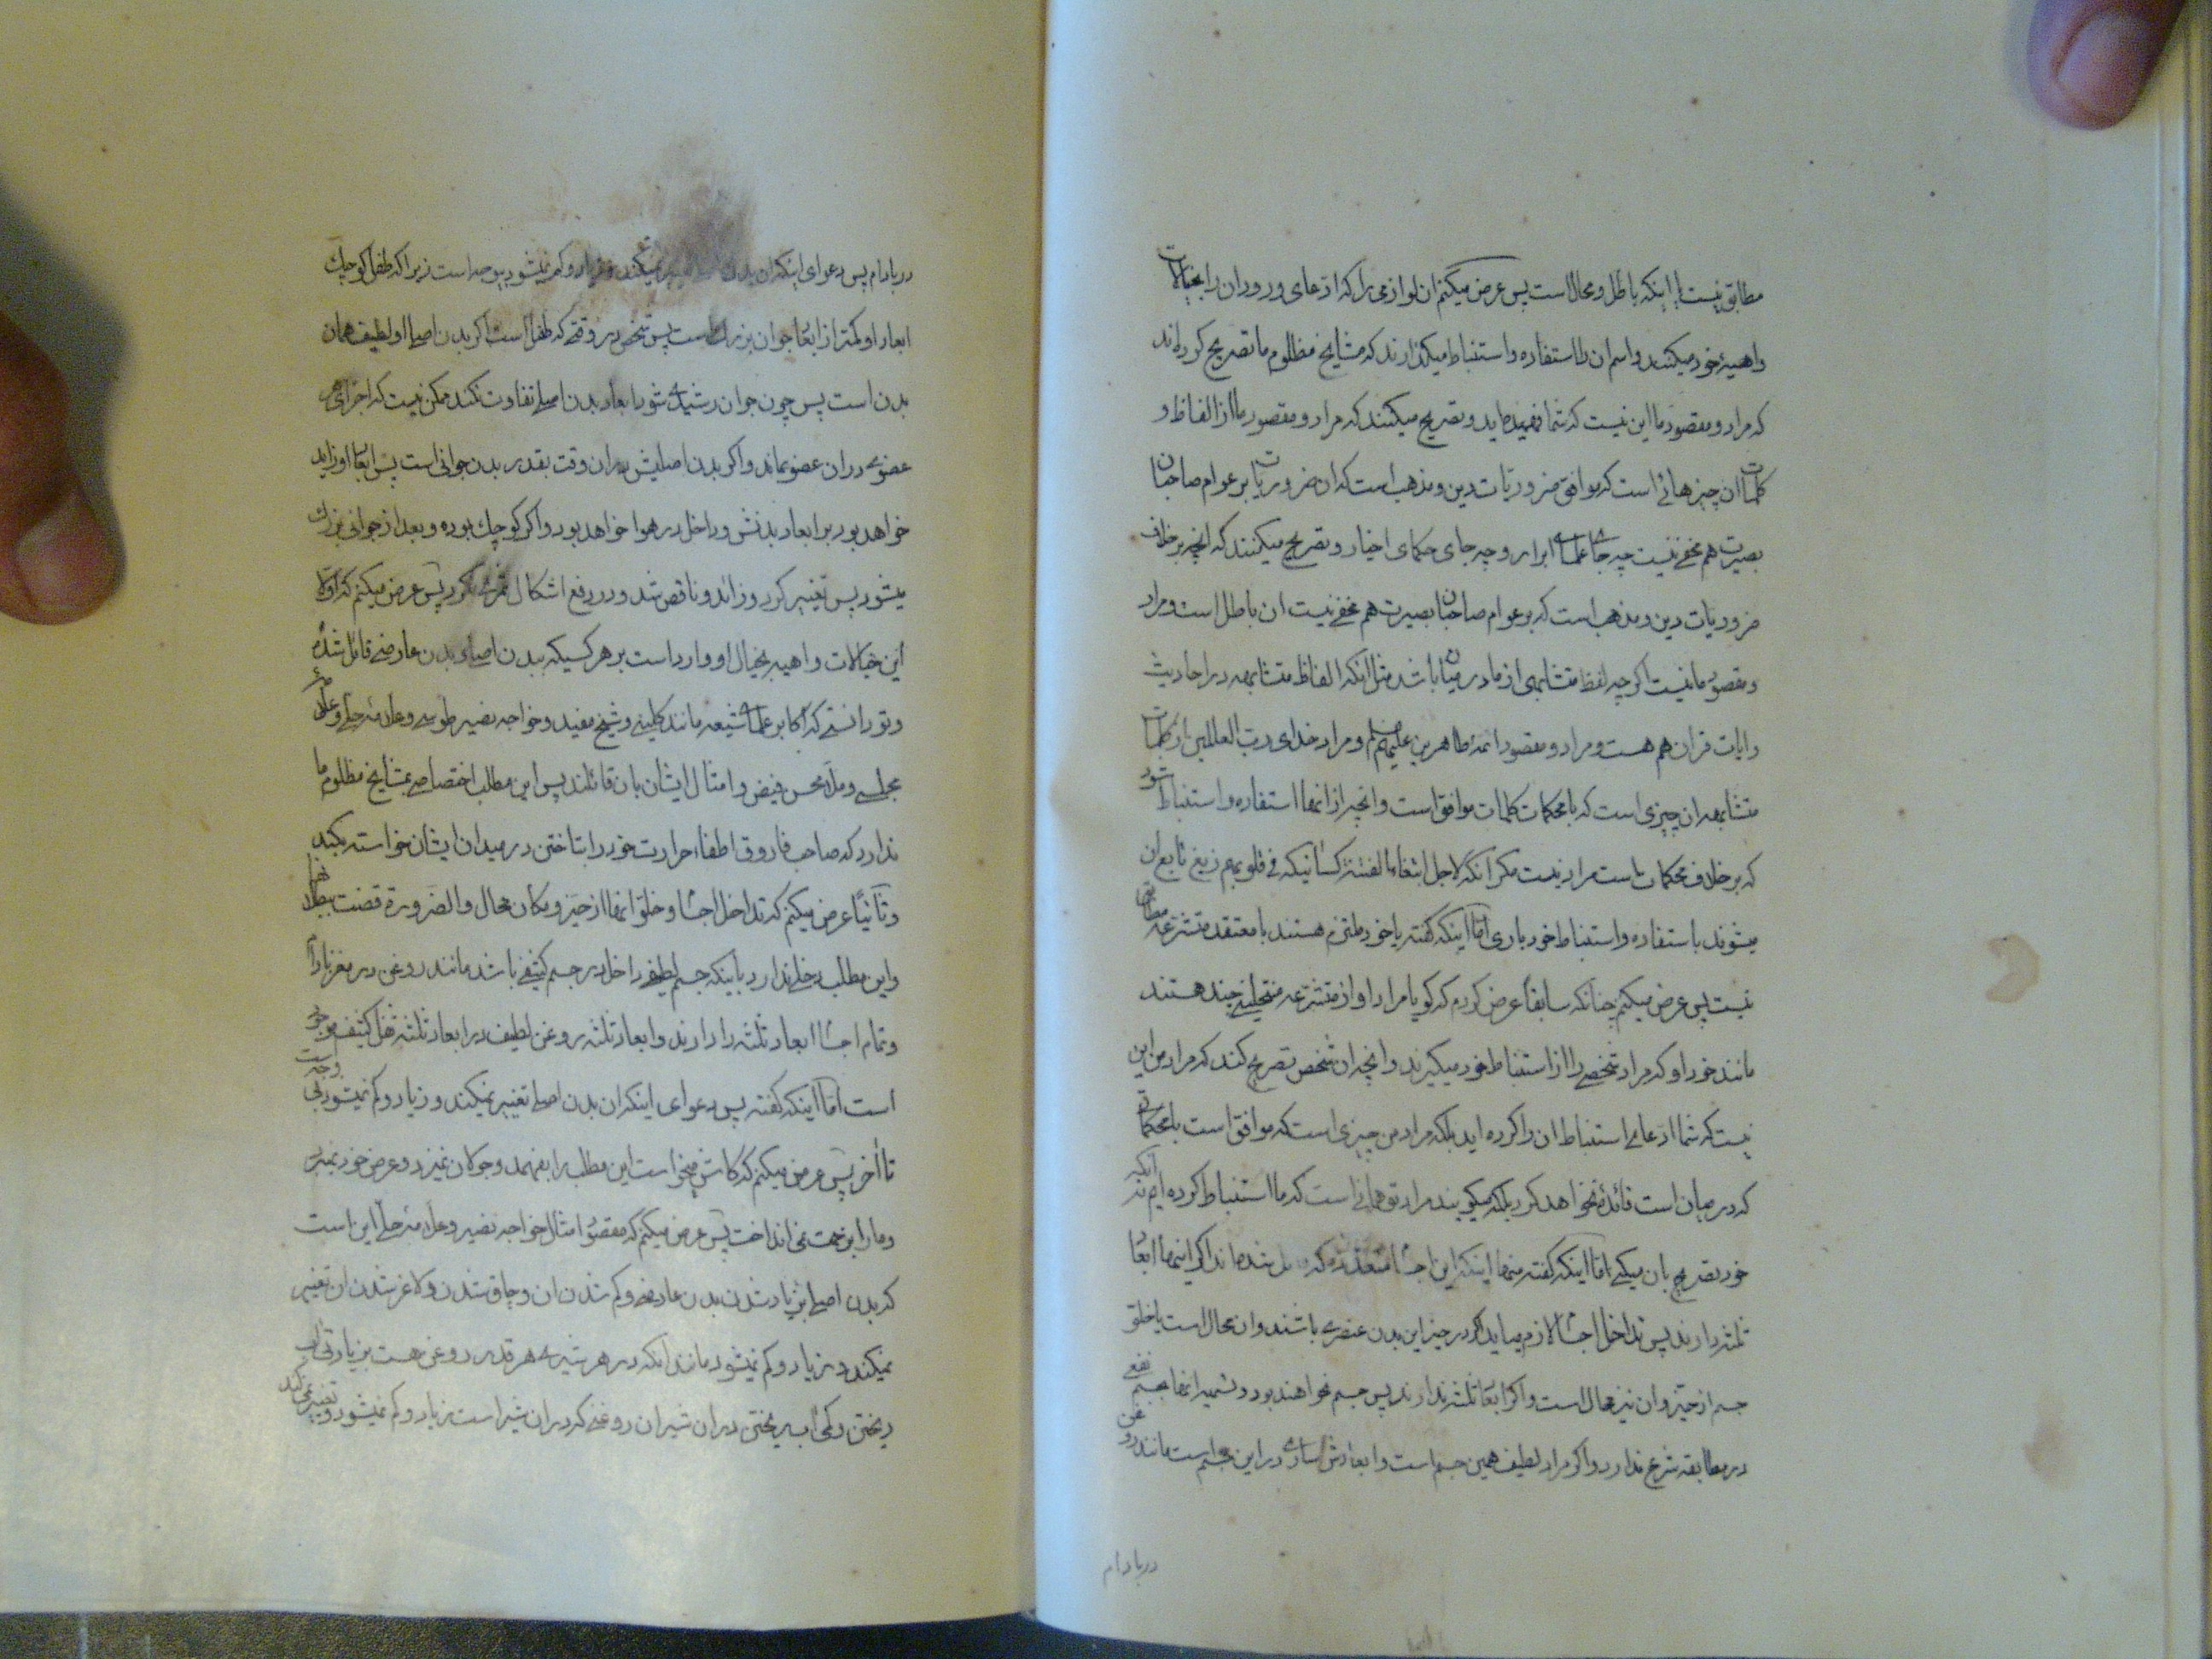 مطابق نیست یا اینکه باطل و محال است پس عرض میکنم ان لوازمی را که ادعای ورود ان را بخیالات
واهیهٔ خود میکنند و اسم ان را استفاده و استنباط میگذارند که مشایخ مظلوم ما تصریح کرده‌اند
که مراد و مقصود ما این نیست که شما فهمیده‌اید و تصریح میکنند که مراد و مقصود ما از الفاظ و
کلمات ان چیزهائی است که موافق ضروریات دین و مذهب است که ان ضروریات بر عوام صاحبان
بصیرت هم مخفی نیست چه جای علمای ابرار و چه جای حکمای اخیار و تصریح میکنند که انچه برخلاف
ضروریات دین و مذهب است که بر عوام صاحبان بصیرت هم مخفی نیست ان باطل است و مراد
و مقصود ما نیست اگرچه لفظ متشابهی از ما در میان باشد مثل انکه الفاظ متشابهه در احادیث
و ایات قران هم هست و مراد و مقصود ائمهٔ طاهرین علیهم السلام و مراد خدای رب العالمین از کلمات
متشابهه ان چیزی است که با محکمات کلمات موافق است و انچه از انها استفاده و استنباط شود
که برخلاف محکمات است مراد نیست مکر انکه لاجل ابتغاء الفتنة کسانیکه فی قلوبهم زیغ تابع ان
میشوند باستفاده و استنباط خود باری اما اینکه گفته یا خود ملتزم هستند با معتقد متشرعه مطابق
نیست پس عرض میکنم چنانکه سابقاً عرض کردم که کویا مراد او از متشرعه منتحلینی چند هستند
مانند خود او که مراد شخصی را از استنباط خود میگیرند و انچه ان شخص تصریح کند که مراد من این
نیست که شما ادعای استنباط ان را کرده اید بلکه مراد من چیزی است که موافق است با محکمات
که در میان است فائده نخواهد کرد بلکه میکویند مراد تو همانی است که ما استنباط کرده ایم نه انکه
خود تصریح بان میکنی اما اینکه گفته منها اینکه این اجسام متعدده که شده‌اند اگر اینها ابعاد
ثلثه دارند پس تداخل اجسام لازم میاید اگر در حیز این بدن عنصری باشند و ان محال است یا خلق
جسم از حیز و ان نیز محال است و اکر ابعاد ثلثه ندارند پس جسم نخواهند بود و تسمیه انها بجسم نفعی
در مطابقه شرع ندارد و اکر مراد لطیف همین جسم است و ابعادش ساری در این جسم است مانند روغن
در بادام
در بادام پس دعوای اینکه ان بدن تغییر نمیکند و زیاد و کم نمیشود بیوجه است زیرا که طفل کوچک
ابعاد او کمتر از ابعاد جوان بزرك است پس شخص در وقتی که طفل است اکر بدن اصلی او لطیف همان
بدن است پس چون جوان رشیدی شود ابعاد بدن اصلی تفاوت نکند ممکن نیست که اجزای هر
عضوی در ان عضو بماند و اکر بدن اصلیش در ان وقت بقدر بدن جوانی است پس ابعاد او زاید
خواهد بود بر ابعاد بدنش و داخل در هوا خواهد بود و اکر کوچك بوده و بعد از جوانی بزرك
میشود پس تغییر کرد و زائد و ناقص شد و در رفع اشکال ثمری نکرد پس عرض میکنم که اولا
این خیالات واهیه بخیال او وارد است بر هر کسیکه ببدن اصلی و بدن عارضی قائل شده
و تو دانستی که اکابر علمای شیعه مانند کلینی و شیخ مفید و خواجه نصیر طوسی و علامه حلی و علامه
مجلسی و ملا محسن فیض و امثال ایشان بان قائلند پس این مطلب اختصاصی بمشایخ مظلوم ما
ندارد که صاحب فاروق اطفاء حرارت خود را بتاختن در میدان ایشان خواسته بکند
و ثانیاً عرض میکنم که تداخل اجسام و خلق انها از حیز و مکان محال و الضرورة قضت ببطلانها
و این مطلب دخلی ندارد باینکه جسم لطیفی داخل در جسم کثیفی باشد مانند روغن در مغز بادام
و تمام اجسام ابعاد ثلثه را دارند و ابعاد ثلثه روغن لطیف در ابعاد ثلثه ثفل کثیف موجود
است اما اینکه گفته پس دعوای اینکه ان بدن اصلی تغییر نمیکند و زیاد و کم نمیشود بی وجه است
تا اخر پس عرض میکنم که کاش میخواست این مطلب را بفهمد و جولان نمیزد و عرض خود نمیبرد
و ما را بزحمت نمی انداخت پس عرض میکنم که مقصود امثال خواجه نصیر و علامه حلی این است
که بدن اصلی بزیاد شدن بدن عارضی و کم شدن ان و چاق شدن و لاغر شدن ان تغییر
نمیکند و زیاد و کم نمیشود مانند انکه در هر شیری هر قدر روغن هست بزیادتی اب
ریختن و کمی اب ریختن در ان شیر ان روغنی که در ان شیر است زیاد و کم نمیشود و تغییر نمی کند